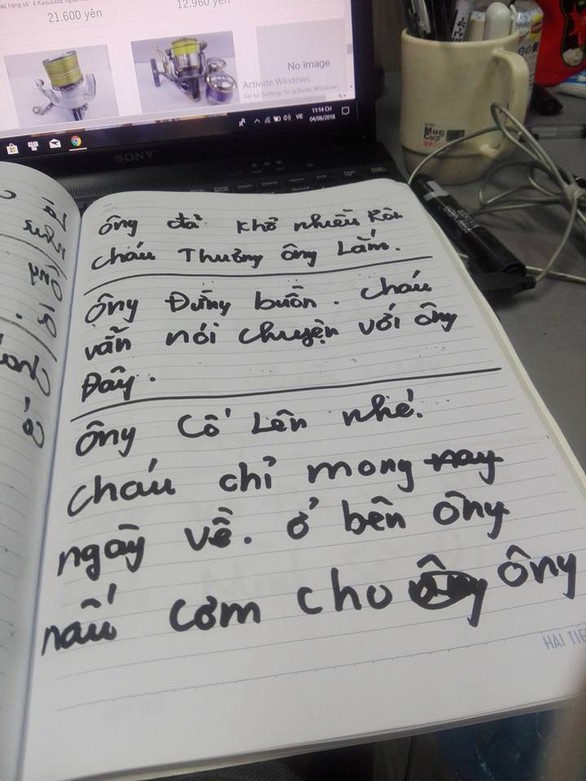 21.600 yên
12.960 yên
No image
Activate Windows
Go to Settings to activate Windows.
11:14 CH
04/06/2018
VIE
SONY
Mug
Cup
ông đã khổ nhiều Rồi
cháu Thương ông Lắm.
ông Đừng buồn. cháu
vẫn nói chuyện với ông
Đây.
ông Cố Lên nhé.
cháu chỉ mong nay
ngày về. ở bên ông
nấu cơm cho ông ông
HẢI TIẾ